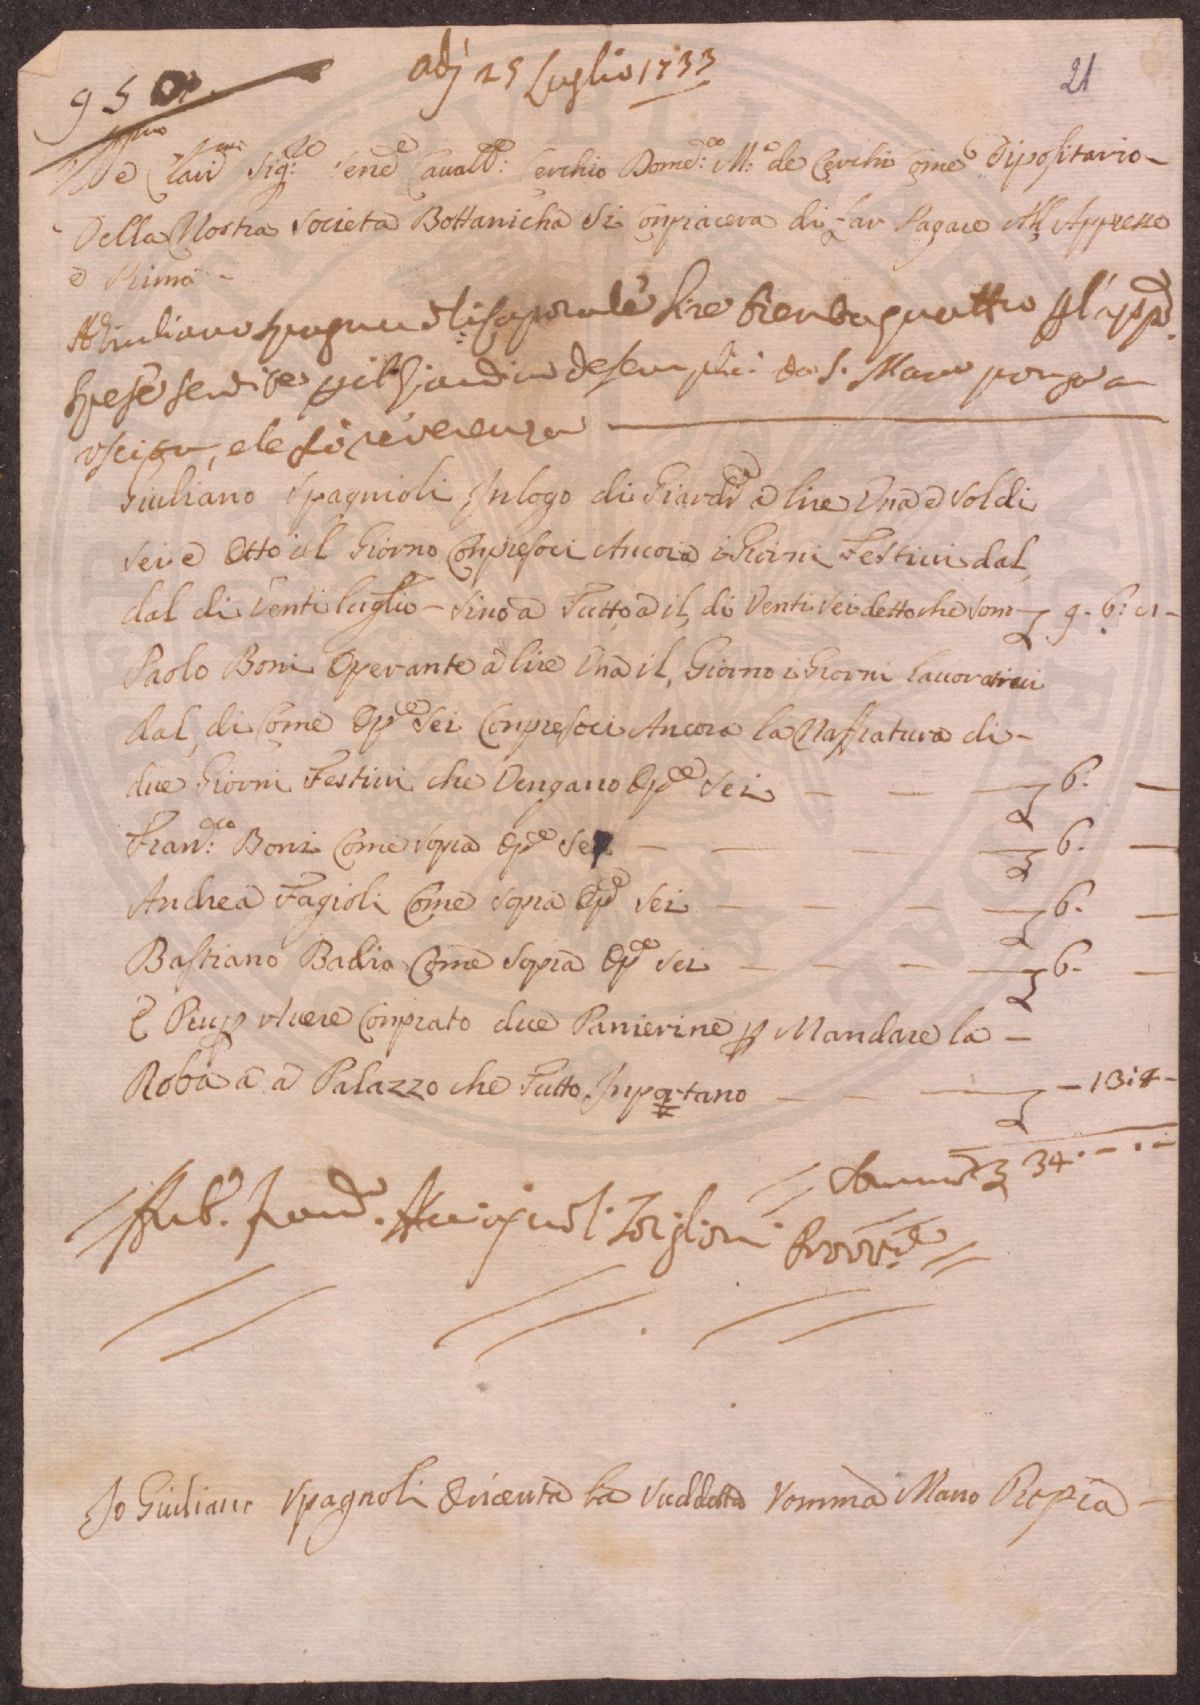 adj 25 Luglio 1733
21
95
Ill.mo e Clar.mo Sig.re Sen.e Cavall.e Cerchio Domed.co M.a de Cerchi Come Dipositario
Della Nostra Societa Bottanicha Si Conpiacera di Far Pagare All Appresso
e Prima
A Giuliano Spagnioli Caporale lire trentaquattro p l'app.e
spese servite p il Giardino de semplici da S. Marco ponga a
uscita, e le fo reverenza
Giuliano Spagnioli In logo di Giard.e a lire Una e Soldi
Sei e Otto il Giorno Conpresoci Ancora i Giorni Festivi dal
dal di Venti luglio Sino a Tutto a il, di Venti Sei detto che Sono 9. 6: 8
Paolo Boni Operante a lire Una il, Giorno i Giorni Lavorativi
dal, di Come Op.e Sei Conpresoci Ancora la Naffiatura di
due Giorni Festivi che Vengano Op.e Sei 6.
Fran.co Boni Come Sopra Op.e Sei 6.
Andrea Fagioli Come Sopra Op.e Sei 6.
Bastiano Badio Come Sopra Op.e Sei 6.
E Piu p Avere Conprato due Panierine p Mandare la
Roba a a Palazzo che Tutto Inportano 13:4
Somma 34
Ant. Fran.
Provv.re
Io Giuliano Spagnoli O ricevuta la Suddetta Somma Mano Propia